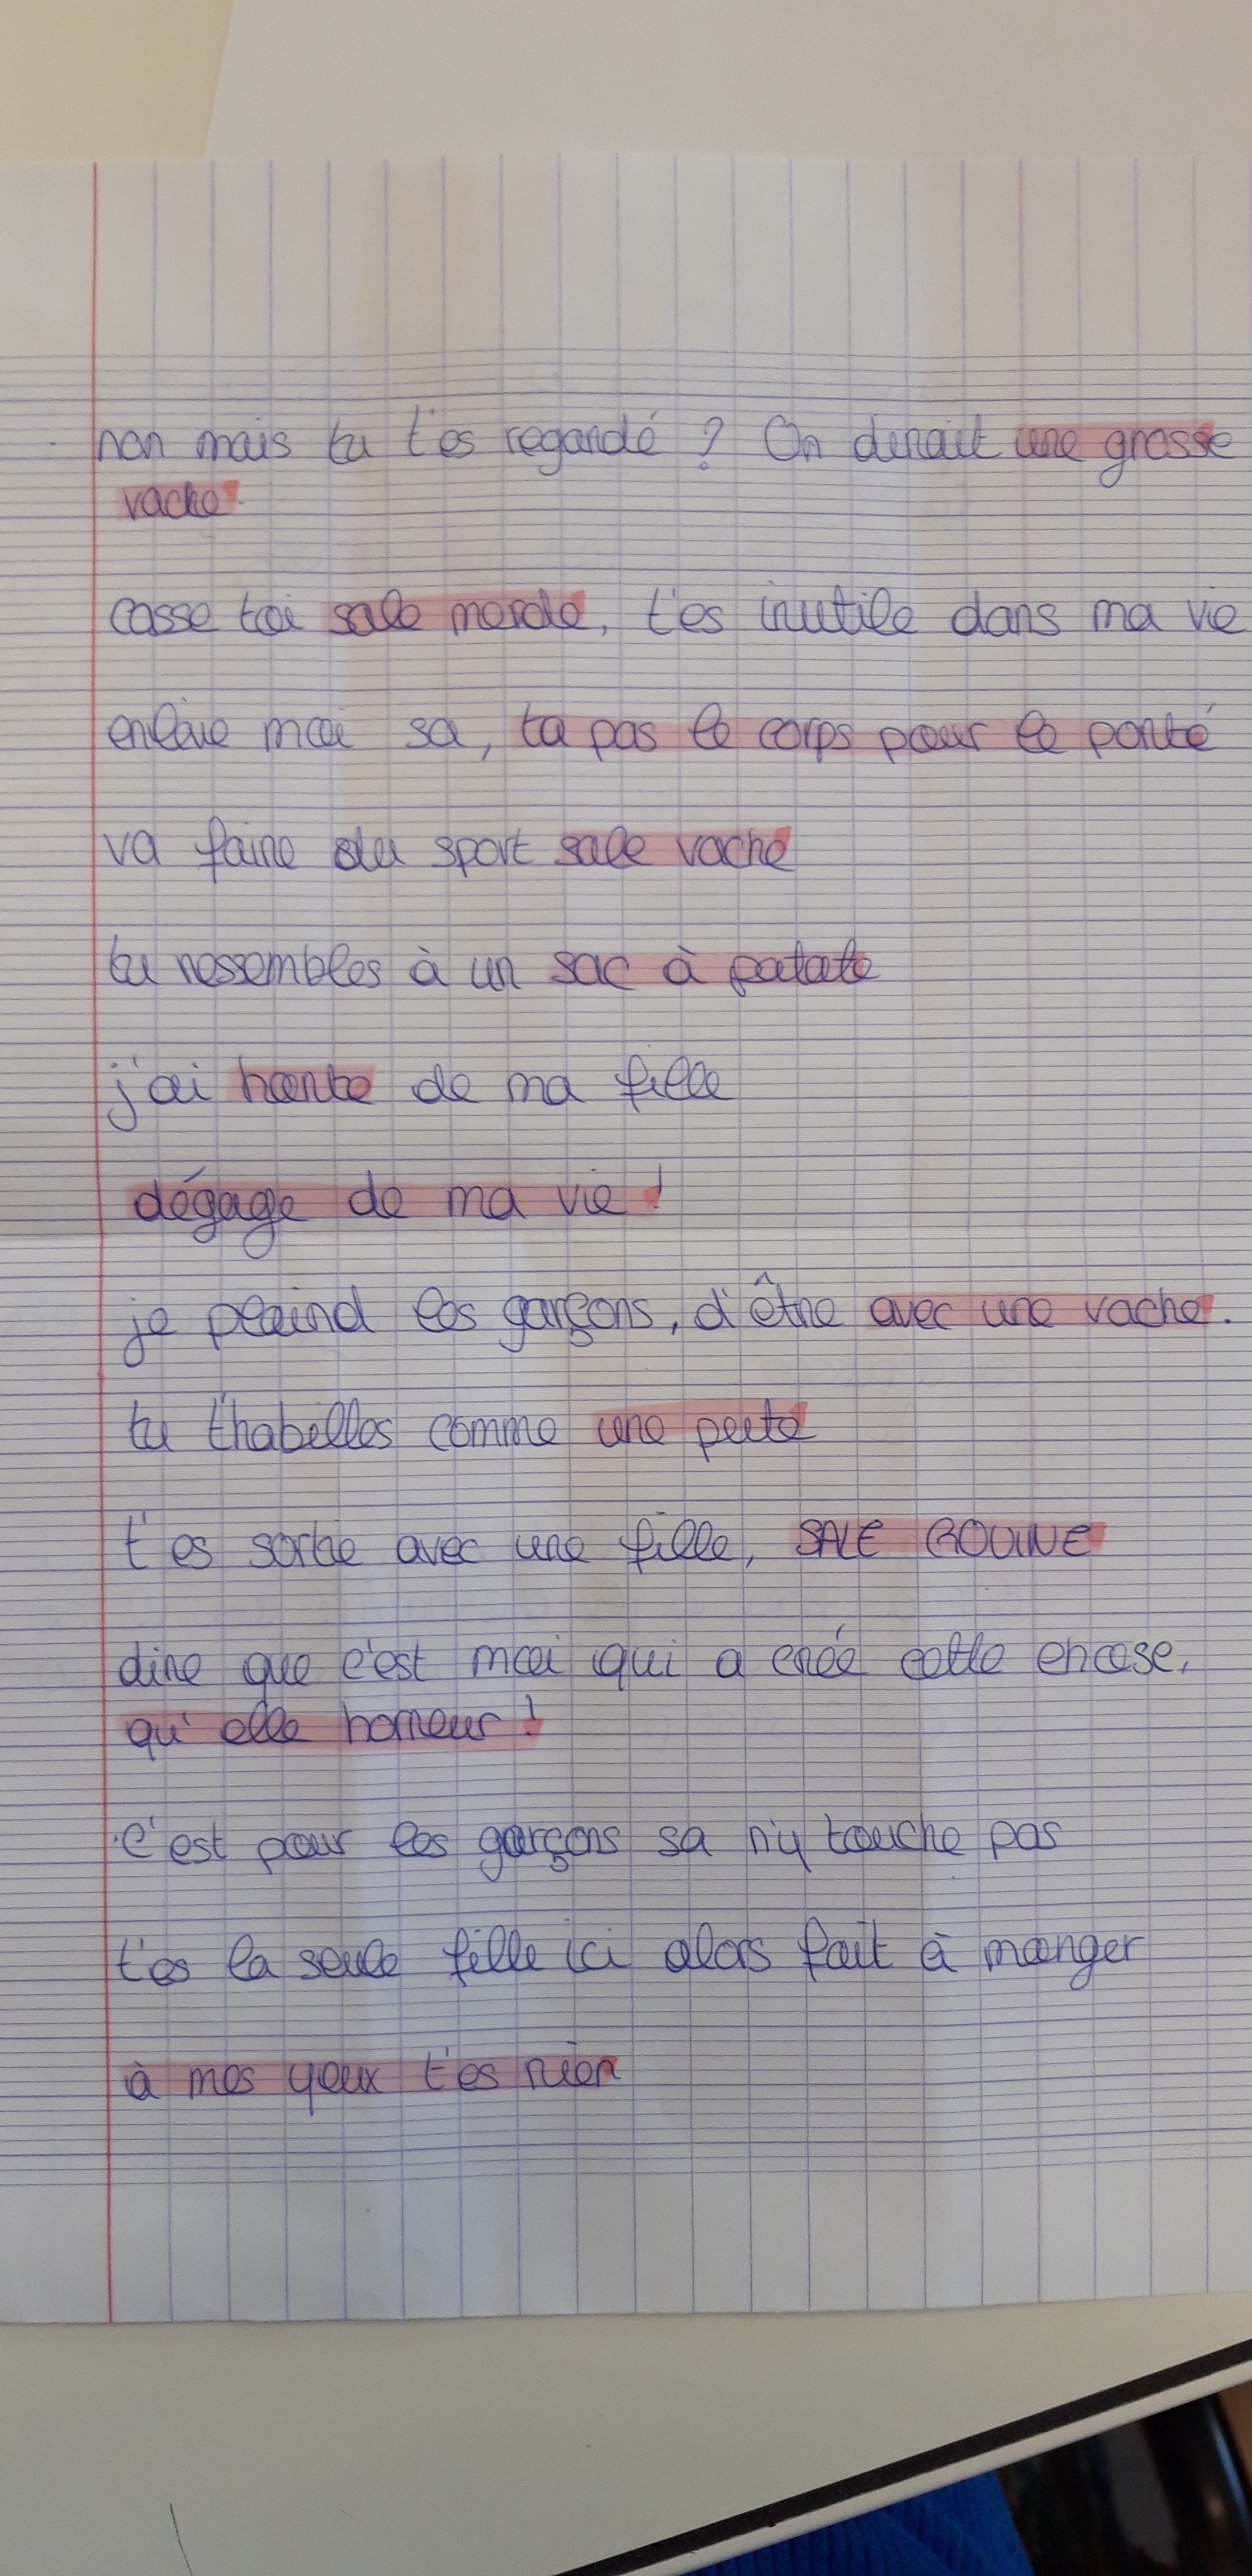 non mais tu t'es regardé ? On dirait une grosse
vache.
casse toi sale merde, t'es inutile dans ma vie
enlève moi sa, ta pas le corps pour le porté
va faire du sport sale vache
tu ressembles à un sac à patate
j'ai honte de ma fille
dégage de ma vie !
je plaind les garçons, d'être avec une vache.
tu t'habilles comme une pute
t'es sortie avec une fille, SALE GOUINE
dire que c'est moi qui a créé cette chose,
qu'elle horreur !
c'est pour les garçons sa n'y touche pas
t'es la seule fille ici alors fait à manger
à mes yeux t'es rien